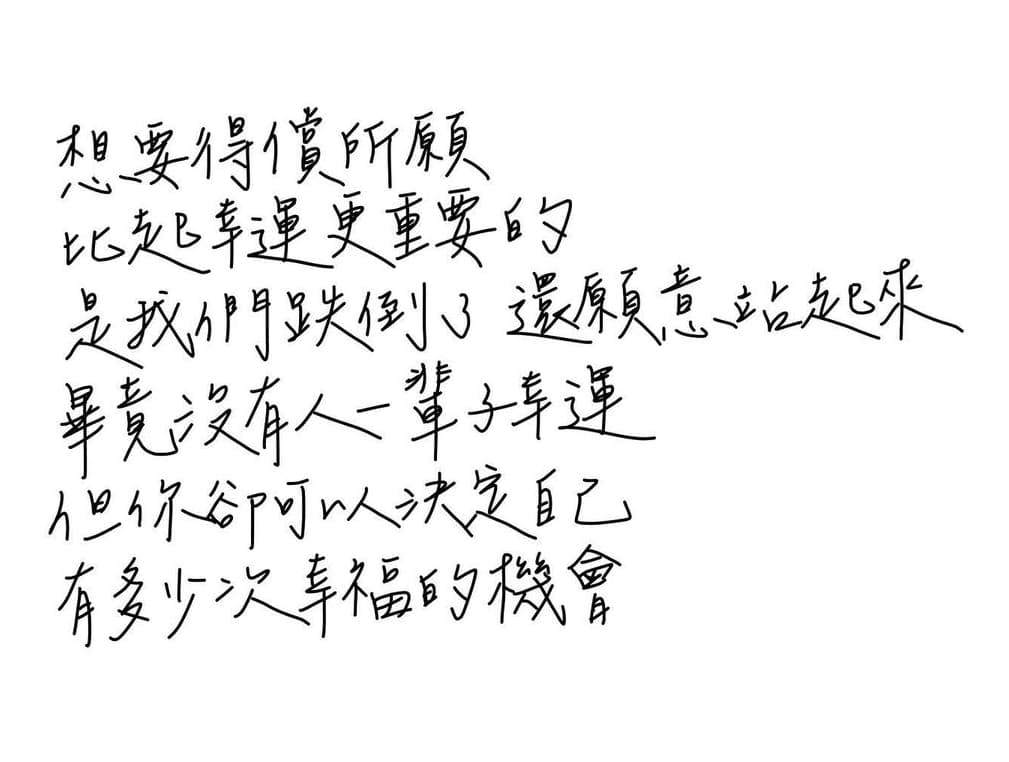 想要得償所願
比起幸運更重要的
是我們跌倒了 還願意站起來
畢竟沒有人一輩子幸運
但你卻可以決定自己
有多少次幸福的機會